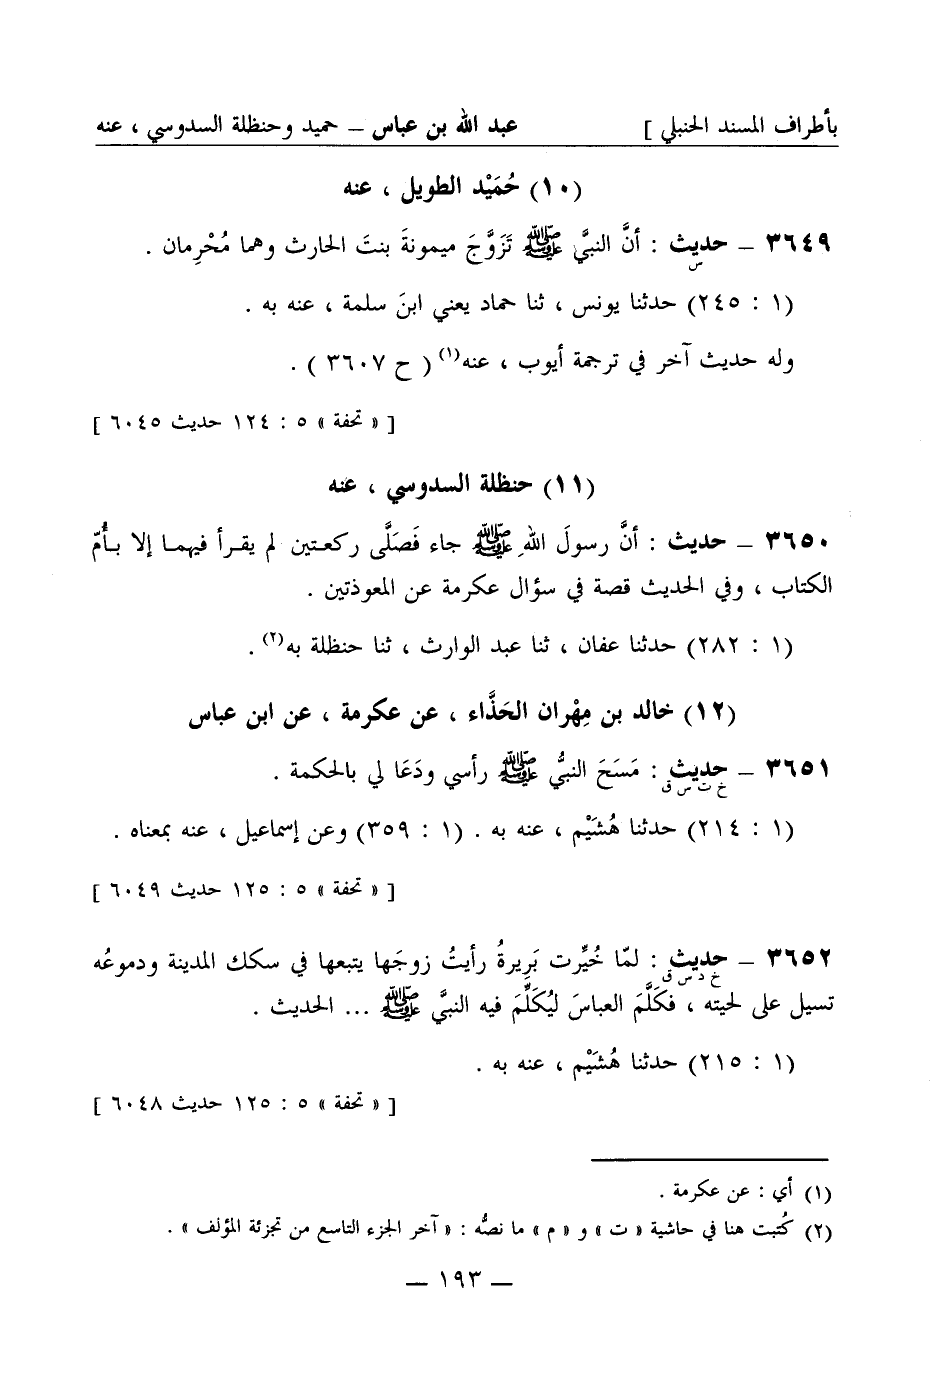 بأطراف المسند الحنبلي ] عبد الله بن عباس – حميد وحنظلة السدوسي ، عنه
(١٠) حُمَيْد الطويل ، عنه
٣٦٤٩ – حديث : أنَّ النبيَّ ﷺ تَزَوَّجَ ميمونةَ بنتَ الحارث وهما مُحْرِمان .
س
(١ : ٢٤٥) حدثنا يونس ، ثنا حماد يعني ابنَ سلمة ، عنه به .
وله حديث آخر في ترجمة أيوب ، عنه(١) ( ح ٣٦٠٧ ) .
[ « تحفة » ٥ : ١٢٤ حديث ٦٠٤٥ ]
(١١) حنظلة السدوسي ، عنه
٣٦٥٠ – حديث : أنَّ رسولَ اللهِ ﷺ جاء فَصَلَّى ركعتين لم يقرأ فيهما إلا بأُمّ
الكتاب ، وفي الحديث قصة في سؤال عكرمة عن المعوذتين .
(١ : ٢٨٢) حدثنا عفان ، ثنا عبد الوارث ، ثنا حنظلة به(٢) .
(١٢) خالد بن مِهْران الحَذَّاء ، عن عكرمة ، عن ابن عباس
٣٦٥١ – حديث : مَسَحَ النبيُّ ﷺ رأسي ودَعَا لي بالحكمة .
خ ت س ق
(١ : ٢١٤) حدثنا هُشَيْم ، عنه به . (١ : ٣٥٩) وعن إسماعيل ، عنه بمعناه .
[ « تحفة » ٥ : ١٢٥ حديث ٦٠٤٩ ]
٣٦٥٢ – حديث : لمّا خُيِّرت بَرِيرةُ رأيتُ زوجَها يتبعها في سكك المدينة ودموعُه
خ د س ق
تسيل على لحيته ، فكَلَّمَ العباسَ ليُكَلِّمَ فيه النبيَّ ﷺ ... الحديث .
(١ : ٢١٥) حدثنا هُشَيْم ، عنه به .
[ « تحفة » ٥ : ١٢٥ حديث ٦٠٤٨ ]
(١) أي : عن عكرمة .
(٢) كُتبت هنا في حاشية « ت » و « م » ما نصُّه : « آخر الجزء التاسع من تجزئة المؤلف » .
– ١٩٣ –